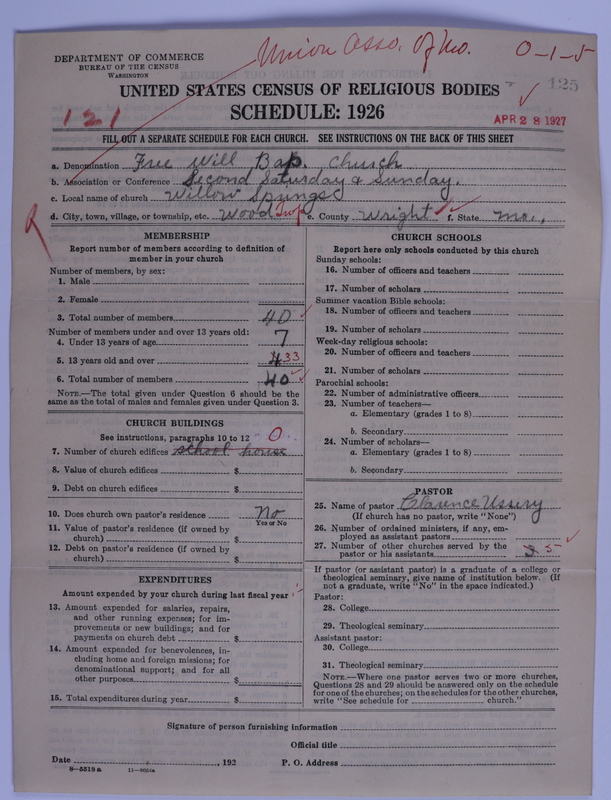 Union Asso. of Mo. 0-1-5
DEPARTMENT OF COMMERCE
BUREAU OF THE CENSUS
WASHINGTON
125
UNITED STATES CENSUS OF RELIGIOUS BODIES
121
SCHEDULE: 1926
APR 28 1927
FILL OUT A SEPARATE SCHEDULE FOR EACH CHURCH. SEE INSTRUCTIONS ON THE BACK OF THIS SHEET
a. Denomination Free Will Bap. Church
b. Association or Conference Second Saturday & Sunday.
c. Local name of church Willow Springs
d. City, town, village, or township, etc. Wood Twp e. County Wright f. State Mo.,
R
MEMBERSHIP
Report number of members according to definition of
member in your church
Number of members, by sex:
1. Male
2. Female
3. Total number of members 40
Number of members under and over 13 years old:
4. Under 13 years of age 7
5. 13 years old and over 33
6. Total number of members 40
NOTE.—The total given under Question 6 should be
same as the total of males and females given under Question 3.
CHURCH BUILDINGS
See instructions, paragraphs 10 to 12 0
7. Number of church edifices school house
8. Value of church edifices $
9. Debt on church edifices $
10. Does church own pastor's residence No
Yes or No
11. Value of pastor's residence (if owned by
church) $
12. Debt on pastor's residence (if owned by
church) $
EXPENDITURES
Amount expended by your church during last fiscal year
13. Amount expended for salaries, repairs,
and other running expenses; for im-
provements or new buildings; and for
payments on church debt $
14. Amount expended for benevolences, in-
cluding home and foreign missions; for
denominational support; and for all
other purposes $
15. Total expenditures during year $
CHURCH SCHOOLS
Report here only schools conducted by this church
Sunday schools:
16. Number of officers and teachers
17. Number of scholars
Summer vacation Bible schools:
18. Number of officers and teachers
19. Number of scholars
Week-day religious schools:
20. Number of officers and teachers
21. Number of scholars
Parochial schools:
22. Number of administrative officers
23. Number of teachers—
a. Elementary (grades 1 to 8)
b. Secondary
24. Number of scholars—
a. Elementary (grades 1 to 8)
b. Secondary
PASTOR
25. Name of pastor Clarence Ussery
(If church has no pastor, write "None")
26. Number of ordained ministers, if any, em-
ployed as assistant pastors
27. Number of other churches served by the
pastor or his assistants 5
If pastor (or assistant pastor) is a graduate of a college or
theological seminary, give name of institution below. (If
not a graduate, write "No" in the space indicated.)
Pastor:
28. College
29. Theological seminary
Assistant pastor:
30. College
31. Theological seminary
NOTE.—Where one pastor serves two or more churches,
Questions 28 and 29 should be answered only on the schedule
for one of the churches; on the schedules for the other churches,
write "See schedule for church."
Signature of person furnishing information
Official title
Date , 192 P. O. Address
8—5518a 11—9054a